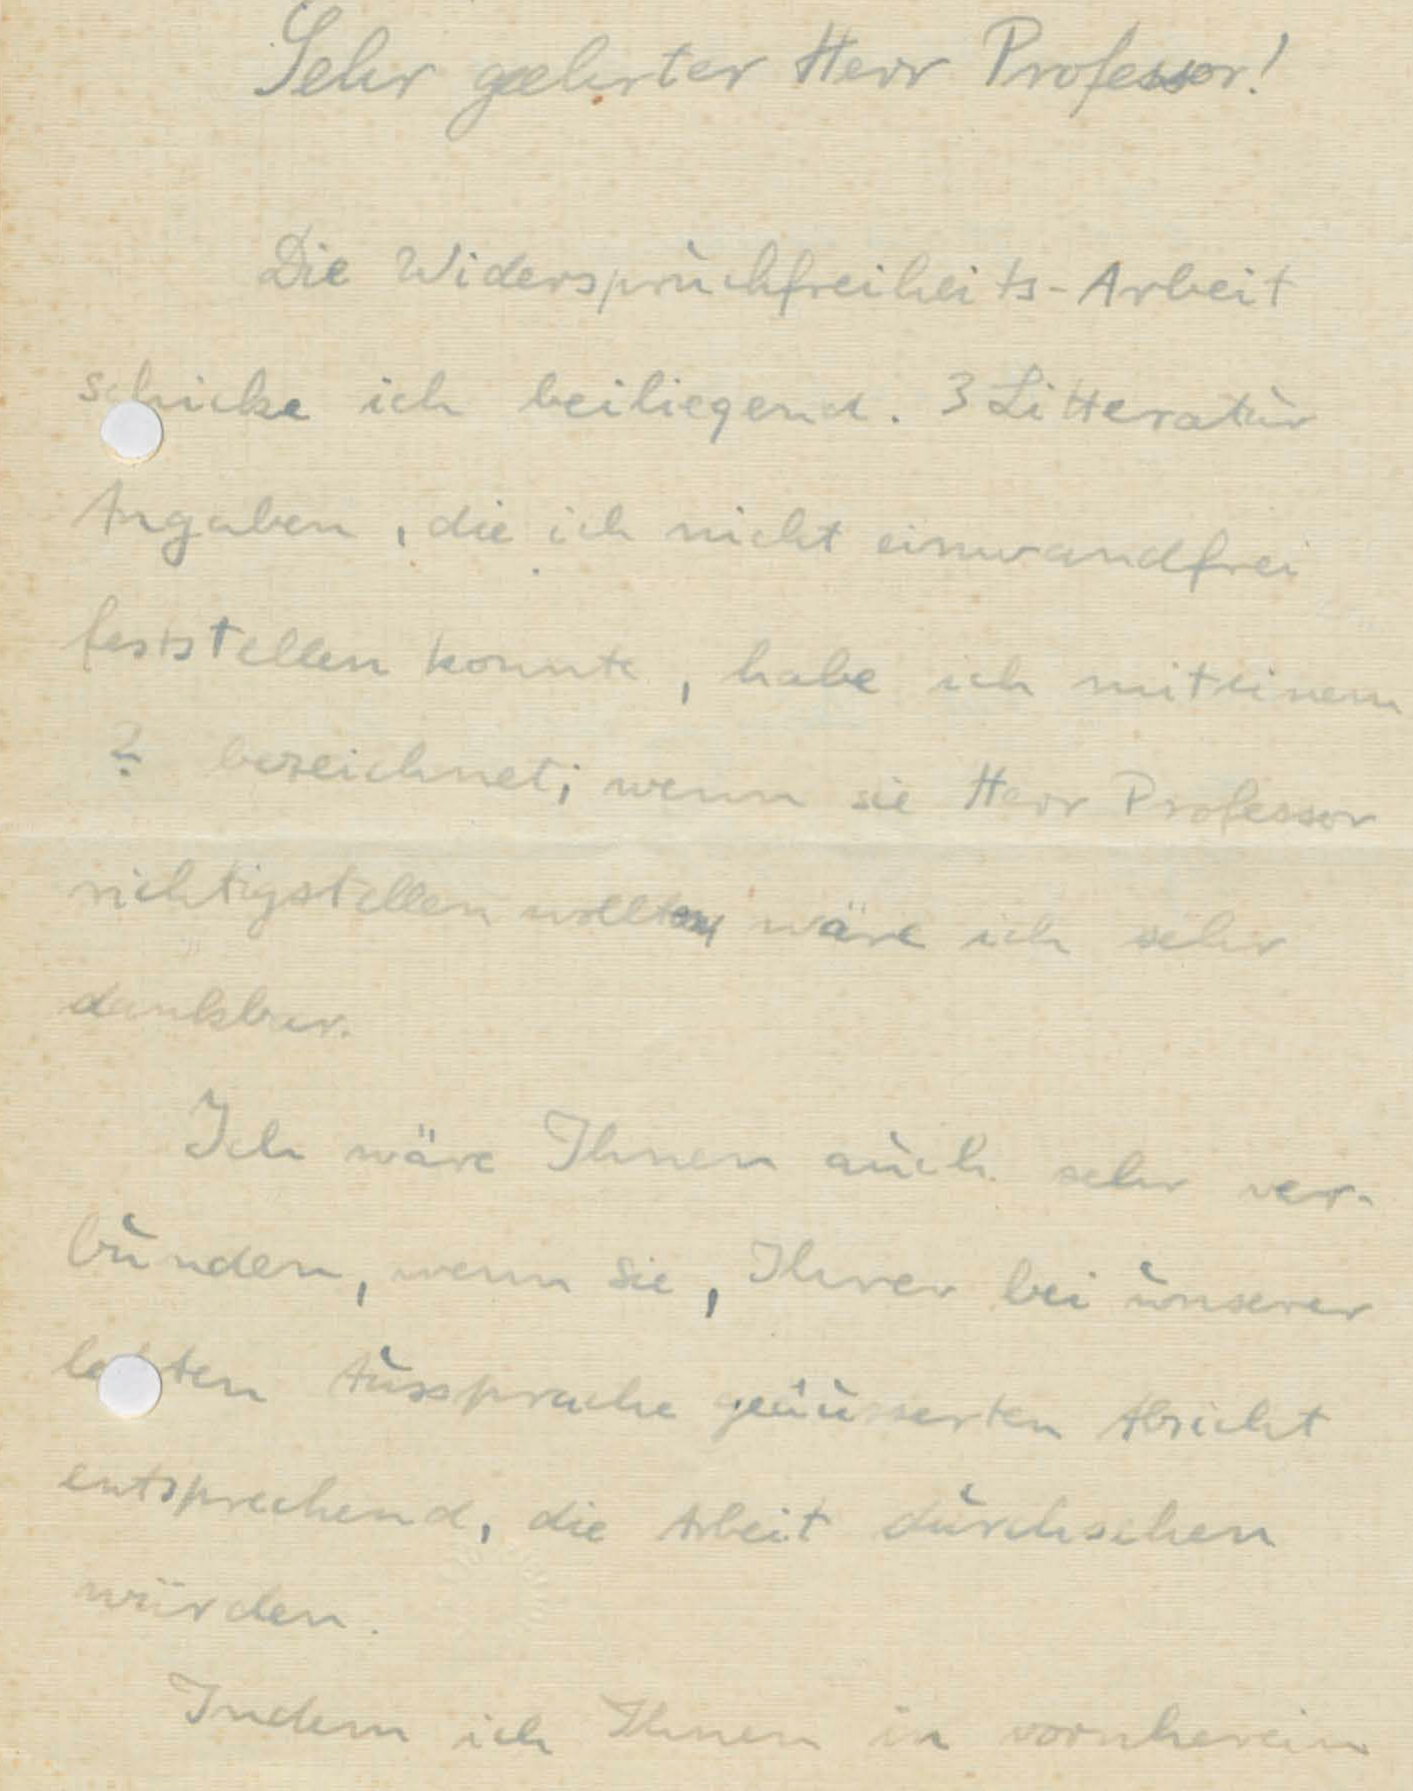 Sehr geehrter Herr Professor!
Die Widerspruchfreiheits-Arbeit
schicke ich beiliegend. 3 Litteratur
Angaben, die ich nicht einwandfrei
feststellen konnte, habe ich mit einem
? bezeichnet; wenn sie Herr Professor
richtigstellen wollten wäre ich sehr
dankbar.
Ich wäre Ihnen auch sehr ver-
bunden, wenn Sie, Ihrer bei unserer
letzten Aussprache geäusserten Absicht
entsprechend, die Arbeit durchsehen
würden.
Indem ich Ihnen in vornherein